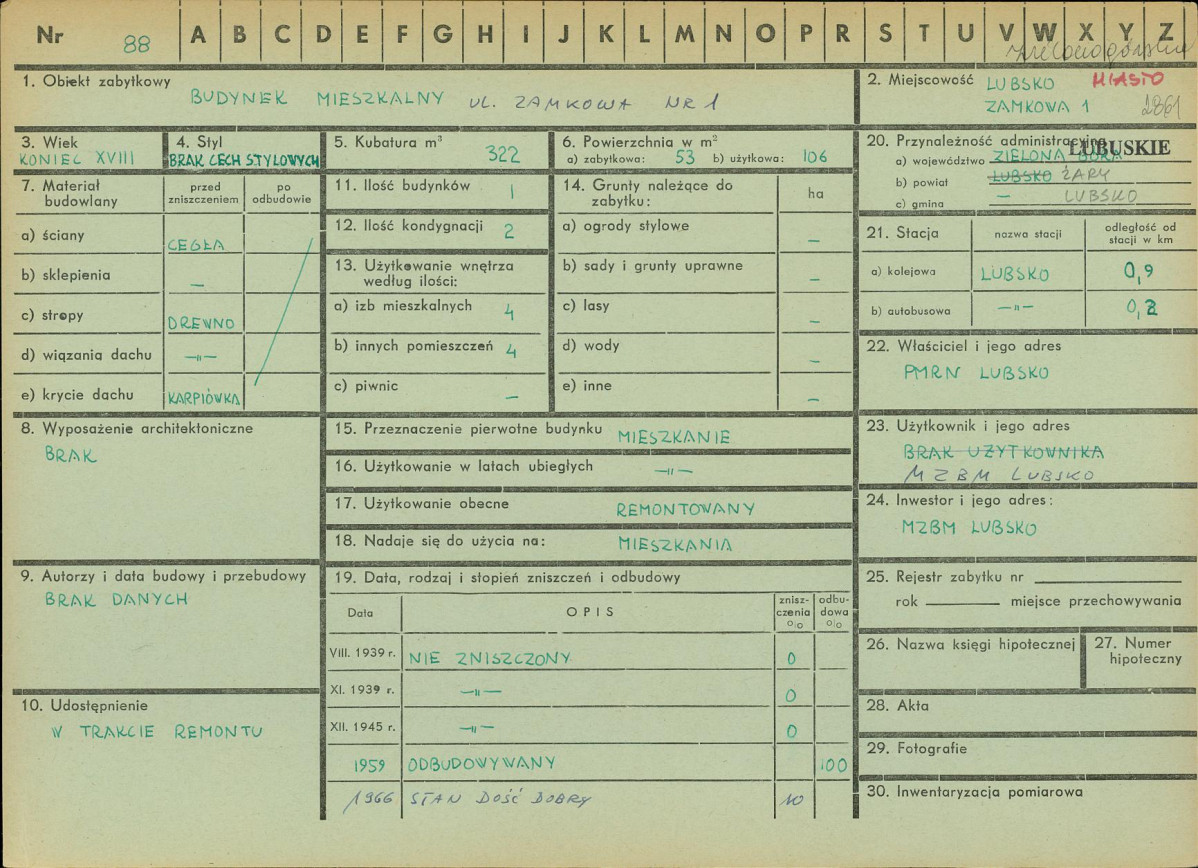 Nr 88 A B C D E F G H I J K L M N O P R S T U V W X Y Z
1. Obiekt zabytkowy
BUDYNEK MIESZKALNY UL. ZAMKOWA NR 1
2. Miejscowość LUBSKO MIASTO
ZAMKOWA 1 2861
3. Wiek
KONIEC XVIII
4. Styl
BRAK CECH STYLOWYCH
5. Kubatura m³
322
6. Powierzchnia w m²
a) zabytkowa: 53 b) użytkowa: 106
7. Materiał budowlany
przed zniszczeniem
po odbudowie
a) ściany CEGŁA
b) sklepienia –
c) stropy DREWNO
d) wiązania dachu –"–
e) krycie dachu KARPIÓWKA
8. Wyposażenie architektoniczne
BRAK
9. Autorzy i data budowy i przebudowy
BRAK DANYCH
10. Udostępnienie
W TRAKCIE REMONTU
11. Ilość budynków 1
12. Ilość kondygnacji 2
13. Użytkowanie wnętrza
według ilości:
a) izb mieszkalnych 4
b) innych pomieszczeń 4
c) piwnic –
14. Grunty należące do
zabytku:
ha
a) ogrody stylowe –
b) sady i grunty uprawne –
c) lasy –
d) wody –
e) inne –
15. Przeznaczenie pierwotne budynku MIESZKANIE
16. Użytkowanie w latach ubiegłych –"–
17. Użytkowanie obecne REMONTOWANY
18. Nadaje się do użycia na: MIESZKANIA
19. Data, rodzaj i stopień zniszczeń i odbudowy
Data
OPIS
znisz-
czenia
%
odbu-
dowa
%
VIII. 1939 r. NIE ZNISZCZONY 0
XI. 1939 r. –"– 0
XII. 1945 r. –"– 0
1959 ODBUDOWYWANY 100
1966 STAN DOŚĆ DOBRY 10
20. Przynależność administracyjna
LUBUSKIE
a) województwo ZIELONA GÓRA
b) powiat LUBSKO ŻARY
c) gmina – LUBSKO
21. Stacja
nazwa stacji
odległość od
stacji w km
a) kolejowa LUBSKO 0,9
b) autobusowa –"– 0,2
22. Właściciel i jego adres
PMRN LUBSKO
23. Użytkownik i jego adres
BRAK UŻYTKOWNIKA
MZBM LUBSKO
24. Inwestor i jego adres:
MZBM LUBSKO
25. Rejestr zabytku nr
rok miejsce przechowywania
26. Nazwa księgi hipotecznej
27. Numer
hipoteczny
28. Akta
29. Fotografie
30. Inwentaryzacja pomiarowa